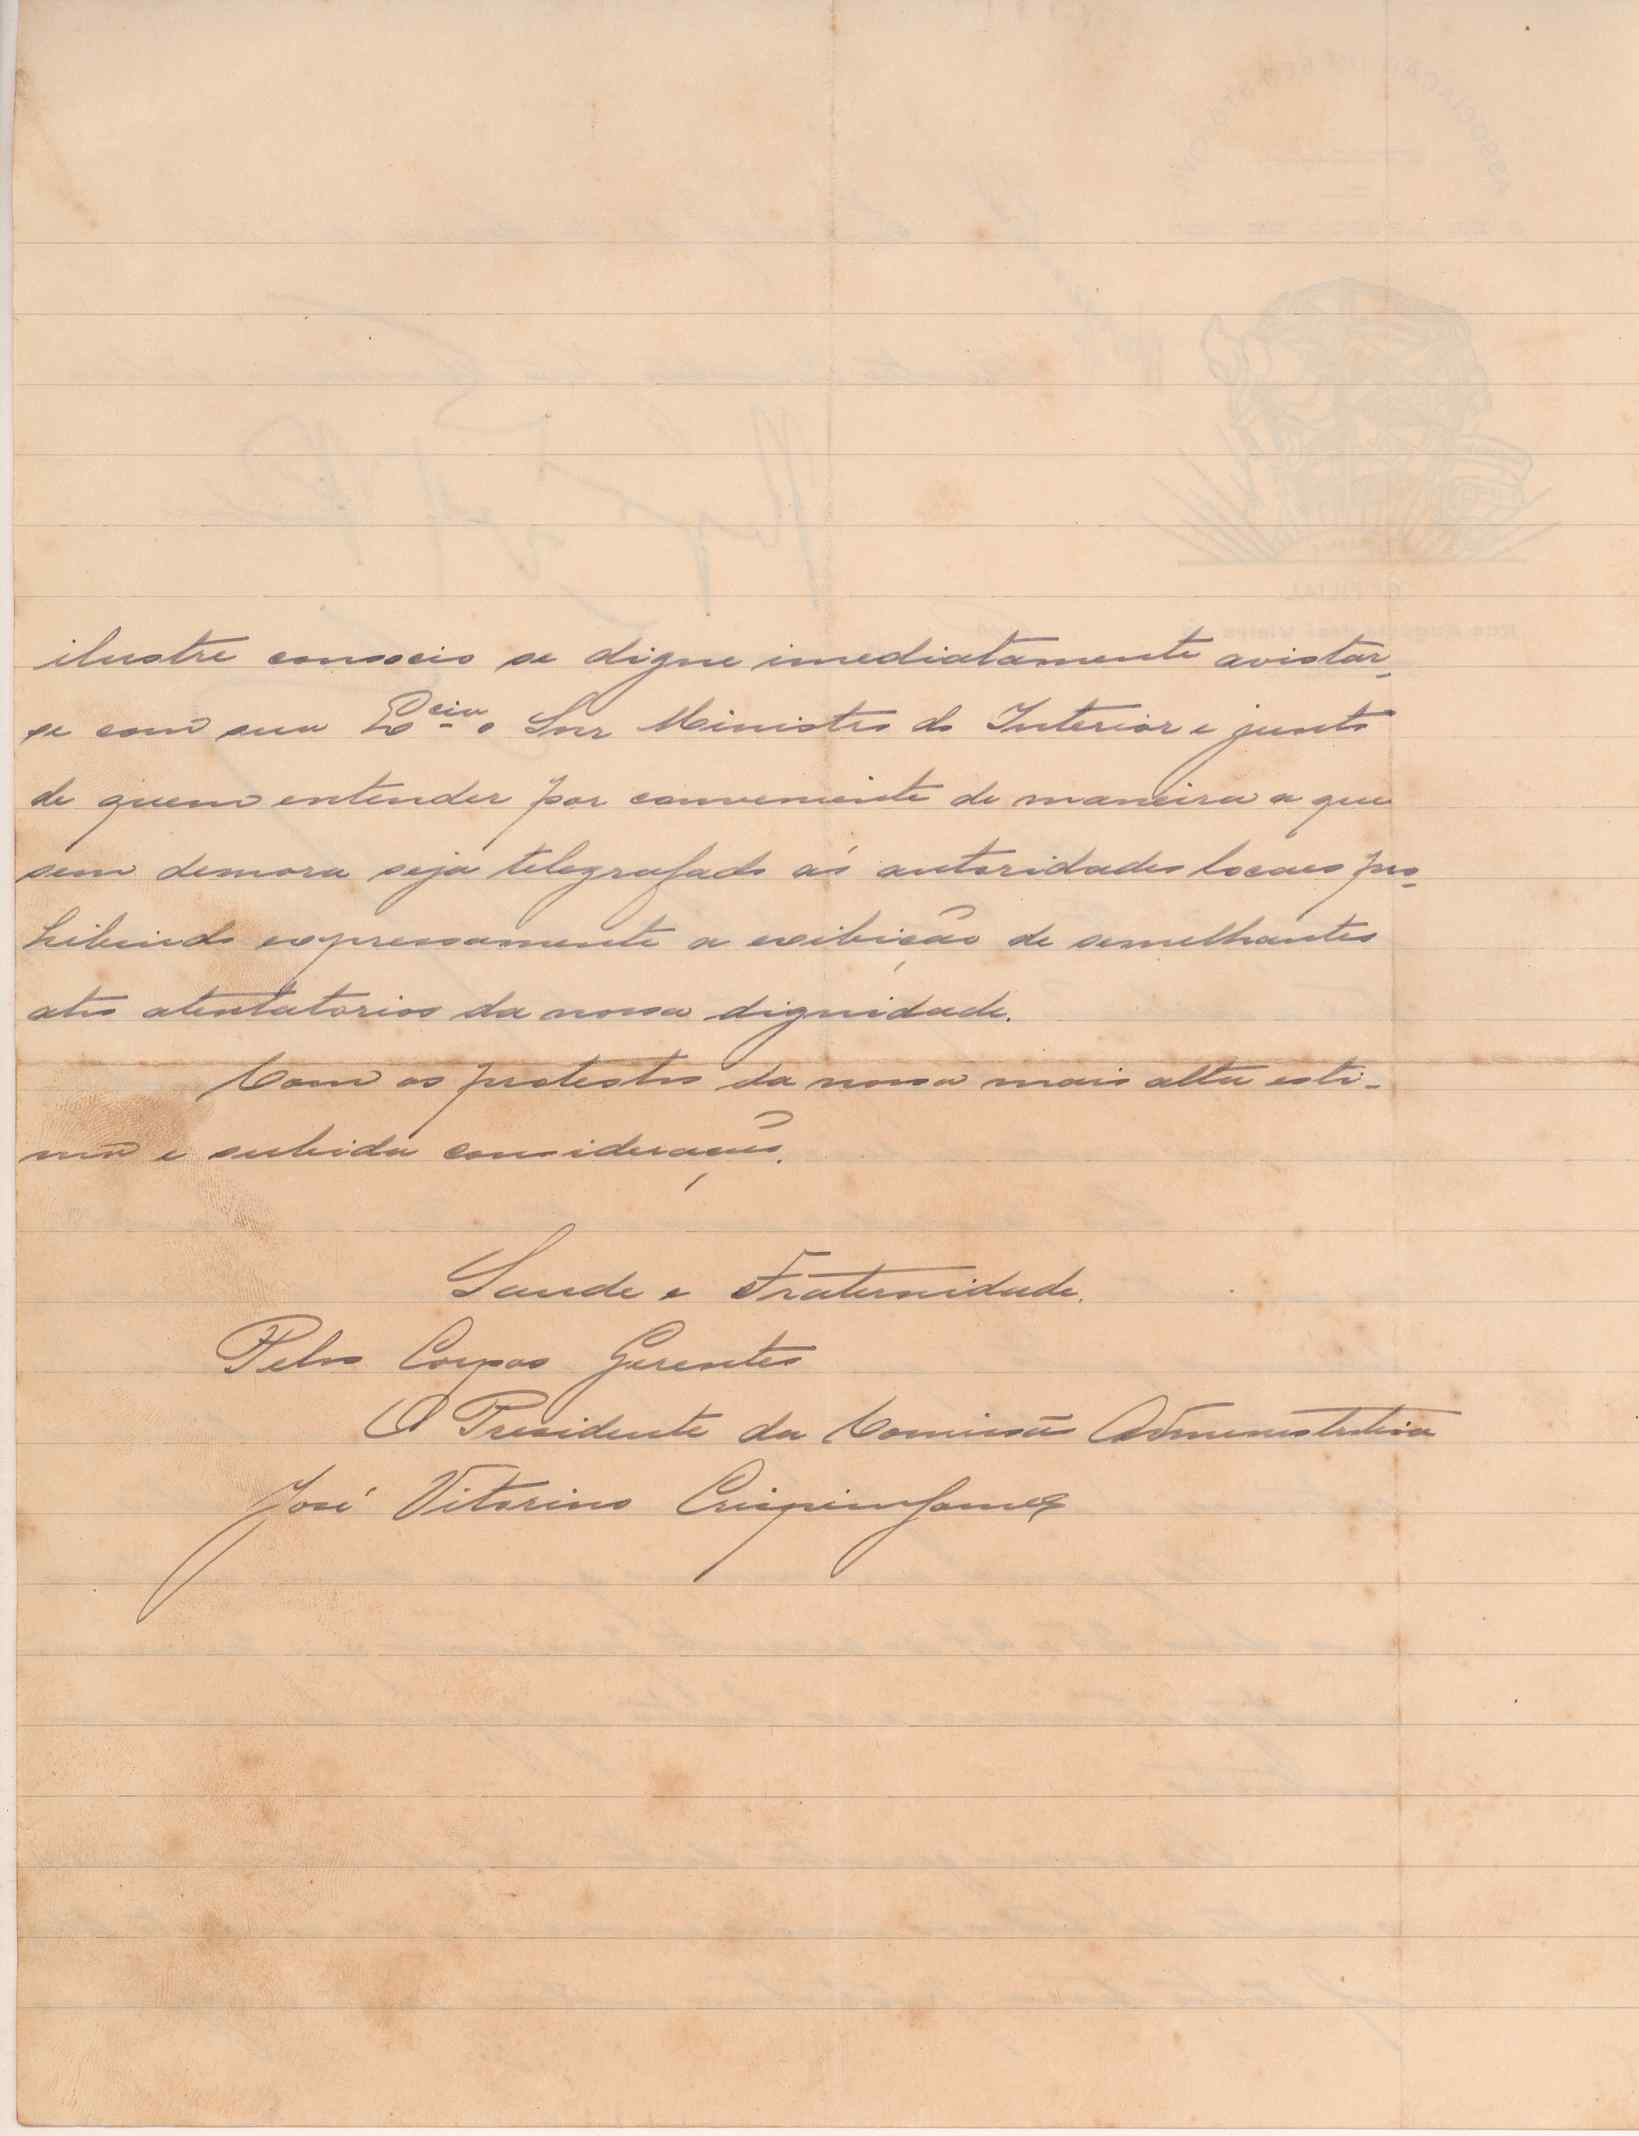 ilustre consocio se digne imediatamente avistar-
se com sua Ex.cia o Snr Ministro do Interior e junto
de quem entender por conveniente de maneira a que
sem demora seja telegrafado ás autoridades locaes pro-
hibindo expressamente a exibição de semelhantes
atos atentatorios da nossa dignidade.
Com os protestos da nossa mais alta esti-
ma e subida consideração.
Saude e Fraternidade.
Pelos Corpos Gerentes
O Presidente da Comissão Administrativa
José Vitorino Crispim Gomes